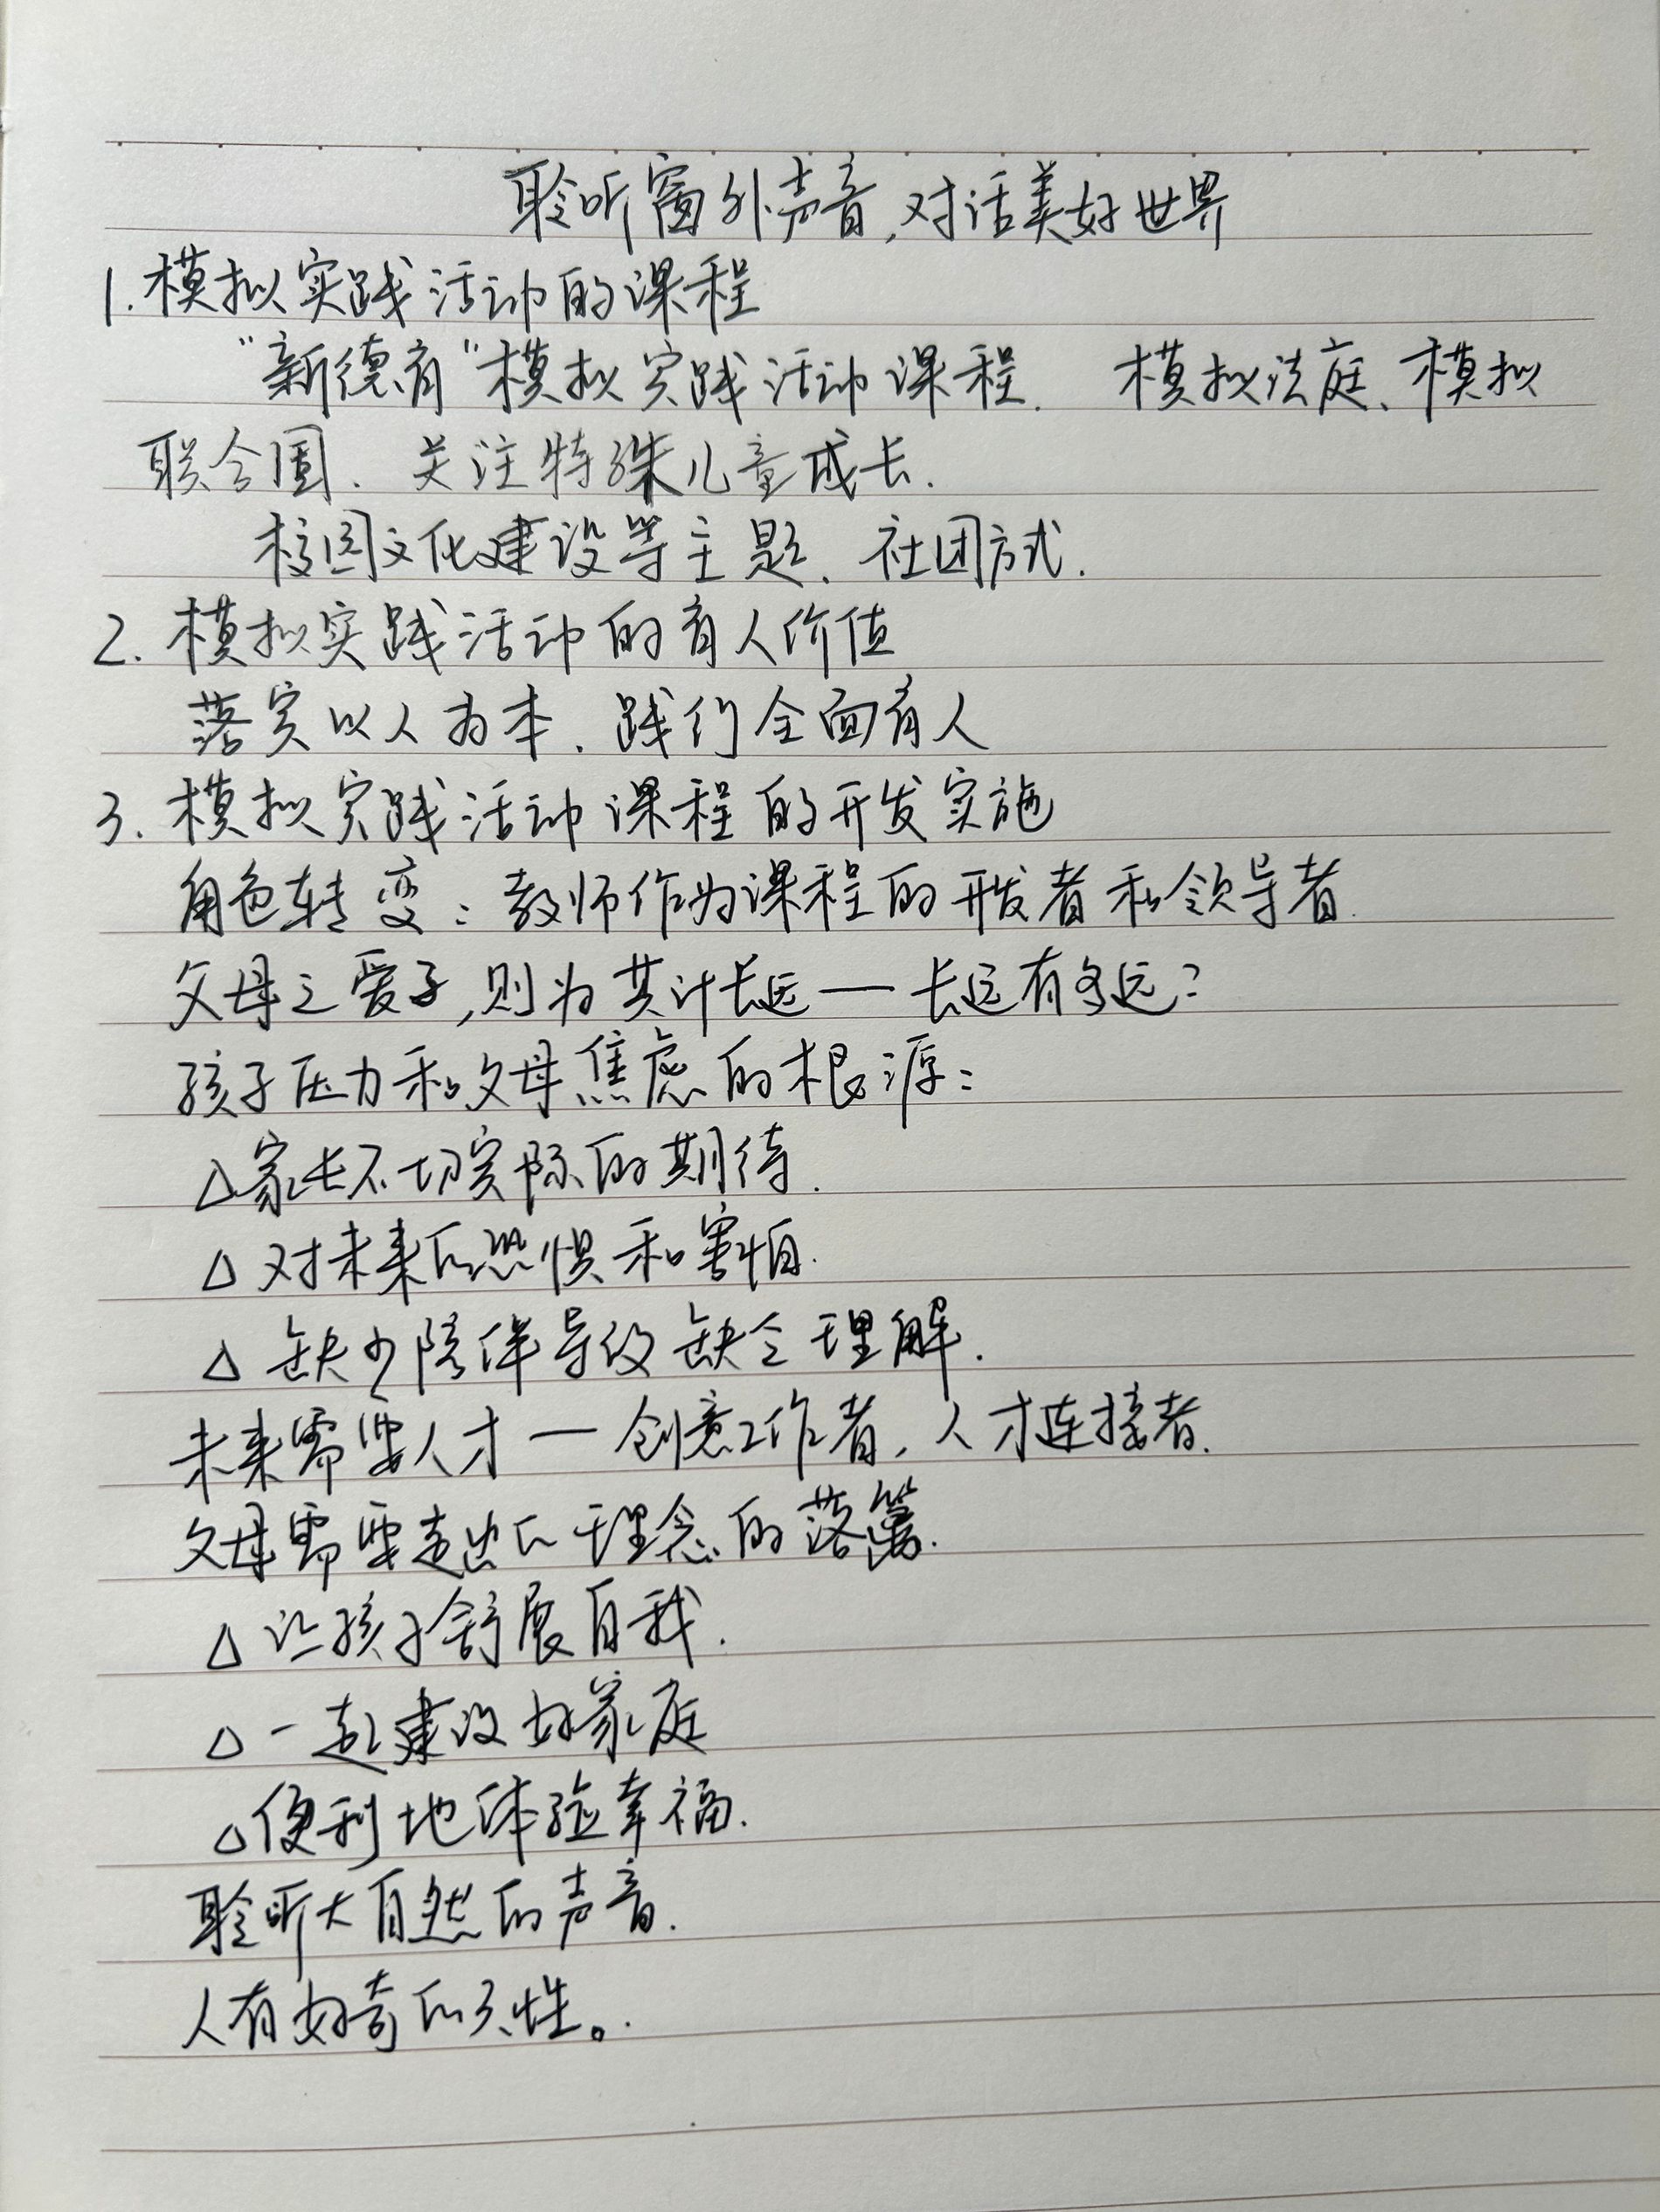 聆听窗外声音,对话美好世界
1.模拟实践活动的课程
"新德育"模拟实践活动课程. 模拟法庭、模拟
联合国. 关注特殊儿童成长.
校园文化建设等主题、社团方式.
2.模拟实践活动的育人价值
落实以人为本、践行全面育人
3.模拟实践活动课程的开发实施
角色转变:教师作为课程的开发者和领导者.
父母之爱子,则为其计长远—长远有多远?
孩子压力和父母焦虑的根源:
△家长不切实际的期待.
△对未来的恐惧和害怕.
△缺少陪伴导致缺乏理解.
未来需要人才—创意工作者,人才连接者.
父母需要走出的理念的落篱.
△让孩子舒展自我.
△一起建设好家庭
△便利地体验幸福.
聆听大自然的声音.
人有好奇的天性。